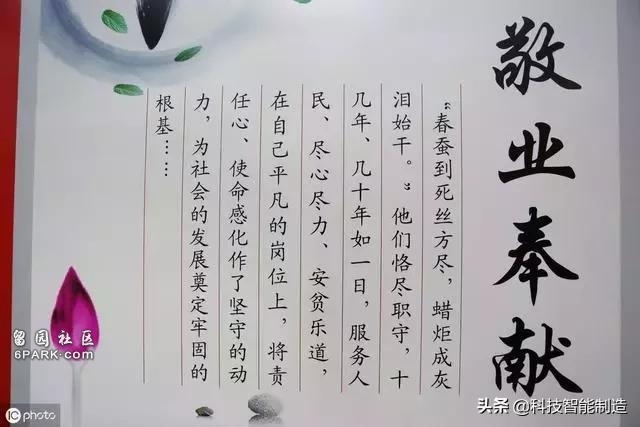 敬业奉献
“春蚕到死丝方尽，蜡炬成灰
泪始干。”他们恪尽职守，十
几年、几十年如一日，服务人
民、尽心尽力、安贫乐道，
在自己平凡的岗位上，将责
任心、使命感化作了坚守的动
力，为社会的发展奠定牢固的
根基……
留园社区
6PARK.COM
IC photo
头条 @科技智能制造